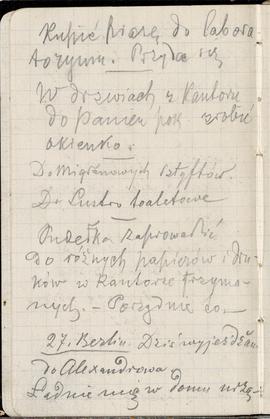 Kupić prasę do labora
toryum. Przyda się
W drzwiach z kantoru
do Panien pok zrobić
okienko.
Do Migrenowych sztyftów.
Do Lustro toaletowe
zaprowadzić
do różnych papierów i dru
ków w kantorze trzyma
nych. – Porządnie co –
27. Berlin. Dziś wyjeżdżam
do Alexandrowa
Ładnie się w domu urzą